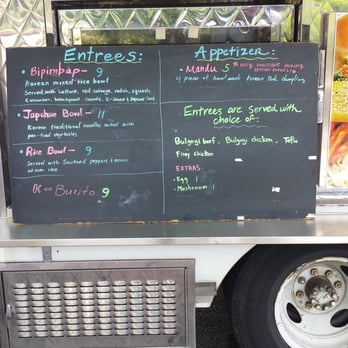 Entrees:
• Bipimbap - 9
Korean mixed rice bowl
Served with lettuce, red cabbage, radish, squash,
Cucumber, beansprout, carrots, K-sauce & Sesame Seed
• Japchae Bowl - 11
Korean traditional noodles mixed with
pan-fried vegetables
• Rice Bowl - 9
Served with Sauteed peppers & onions
over rice
Burito 9
Appetizer:
• Mandu 5 * only available during
special events
4 pieces of hand made Korean Pork dumpling
Entrees are Served with
choice of:
Bulgogi beef, Bulgogi chicken, Tofu
Firey Chicken
EXTRAS
- Egg 1
- Mushroom 1